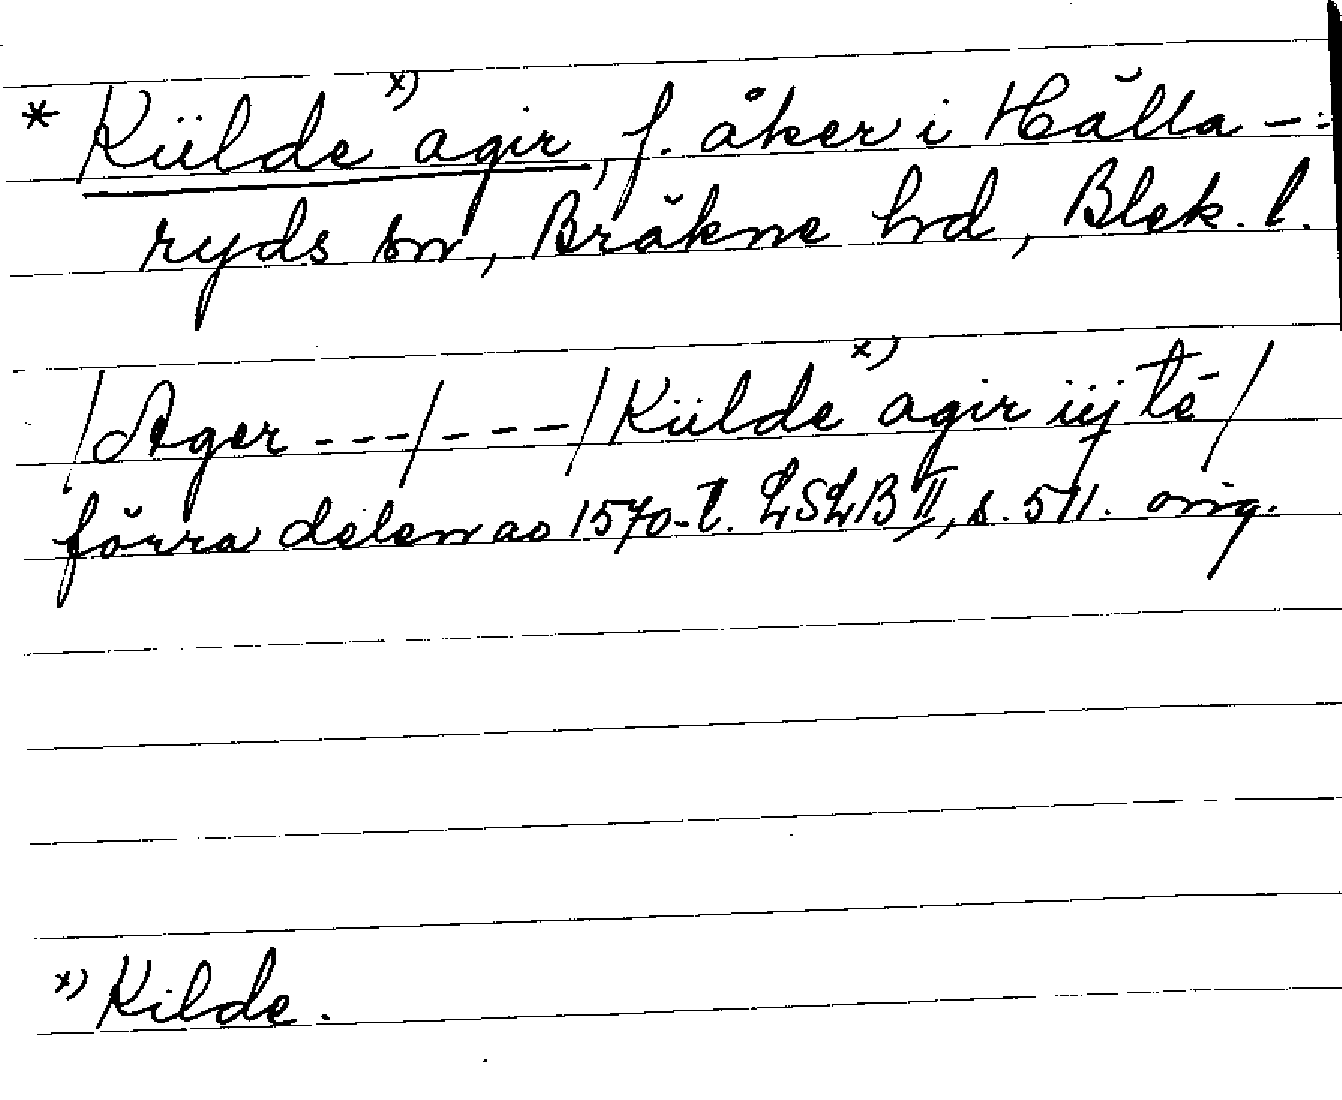 * Kiilde x) agir, f. åker i Hälla-
ryds sn, Bräkne hd, Blek. l.
/Ager ---/---/Kiilde x) agir iij té/
förra delen av 1570-t. LSLB II, s. 511. orig.
x) Kilde.